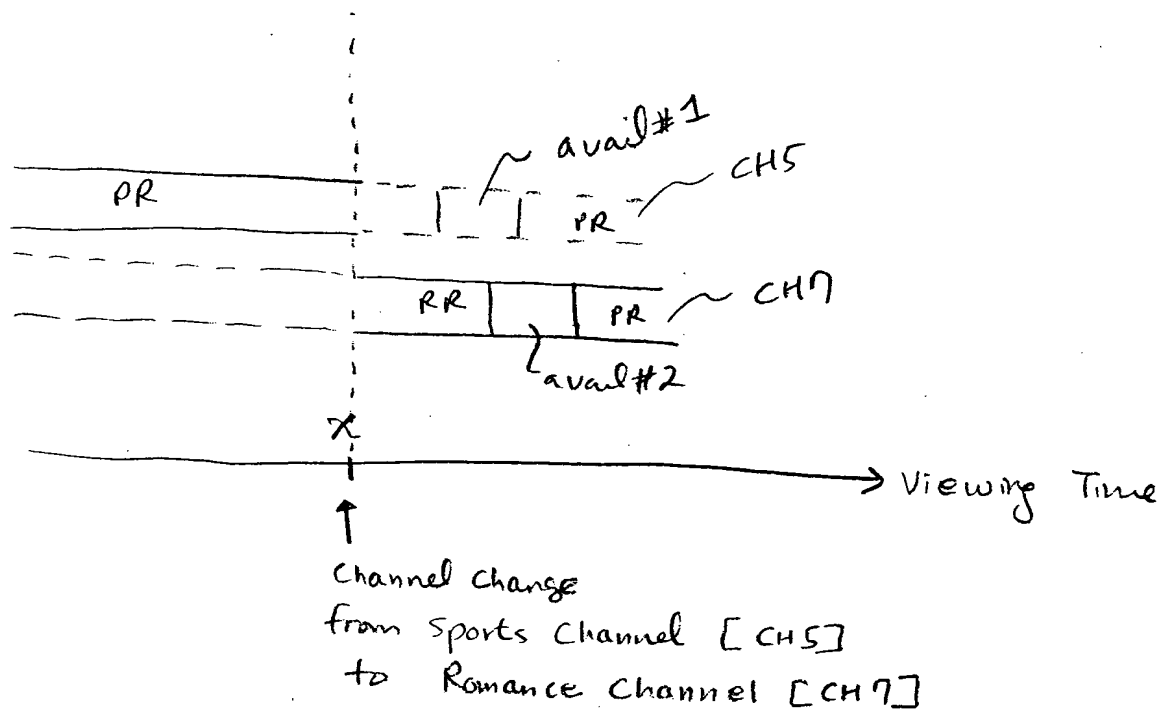 avail #1
CH5
PR
PR
RR
PR
CH7
avail #2
X
Viewing Time
Channel Change
from Sports Channel [CH5]
to Romance Channel [CH7]